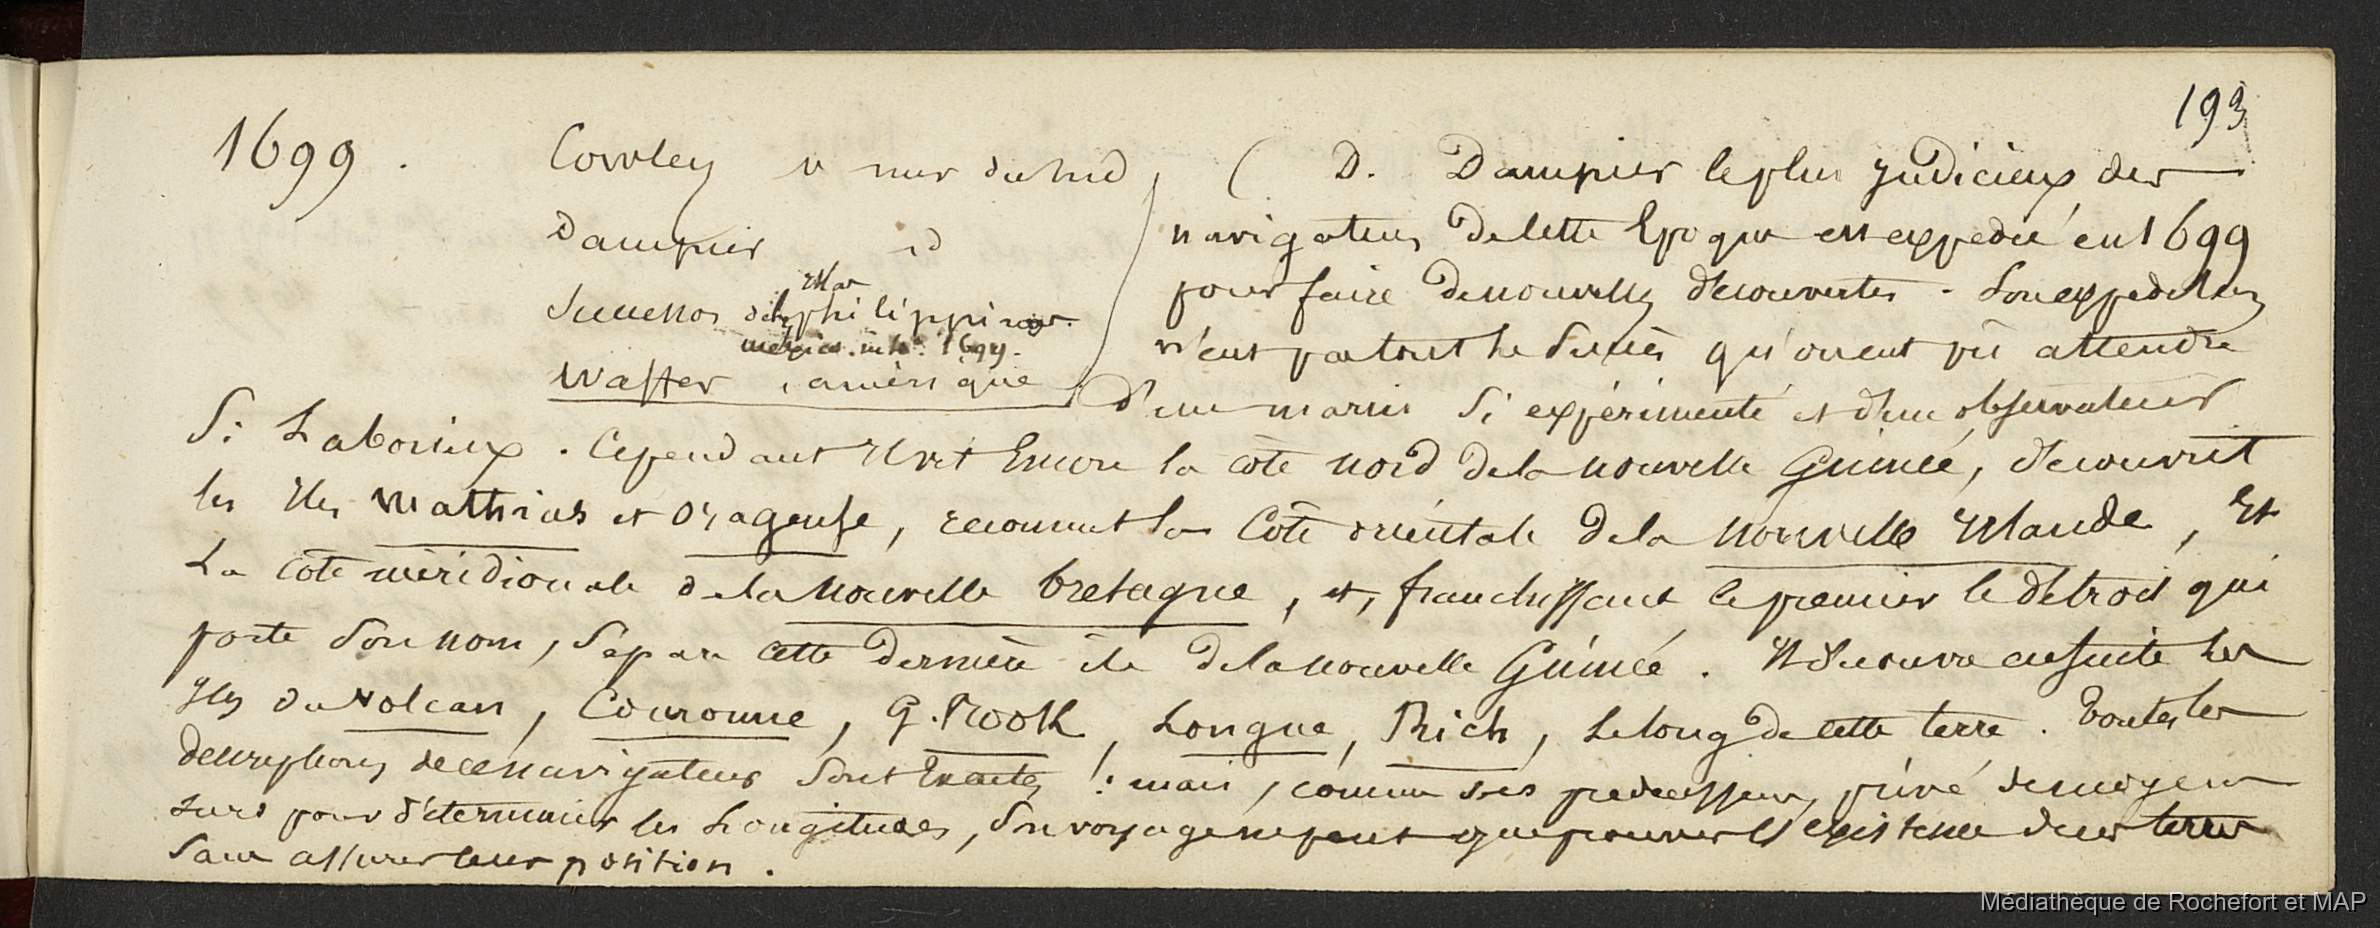 193
1699.
Cowley v mer du sud
Dampier id
Mar
Successos des philippines.
mexico. in 4º. 1699.
Waffer, amérique
( D. Dampier le plus judicieux des
navigateurs de cette Epoque est expédié en 1699
pour faire de nouvelles découvertes. Son expedition
n'eut pas tout le succès qu'on eut pû attendre
d'un marin si expérimenté et d'un observateur
si Laborieux. Cependant il vit Encore la côte nord de la nouvelle Guinée, découvrit
les Iles Mathias et orageuse, reconnut la Côte orientale de la nouvelle Irlande, Et
La côte méridionale de la nouvelle bretagne, et, franchissant le premier le détroit qui
porte son nom, sépara cette dernière île de la nouvelle Guinée. Il découvre ensuite les
Iles du Volcan, Couronne, G. Rook, Longue, Rich, le long de cette terre. Toutes les
descriptions de ce navigateur sont Exactes !: mais, comme ses predecesseurs, privé de moyens
surs pour déterminer les Longitudes, son voyage ne peut que prouver l'existence de ces terres
sans assurer leur position.
Médiathèque de Rochefort et MAP